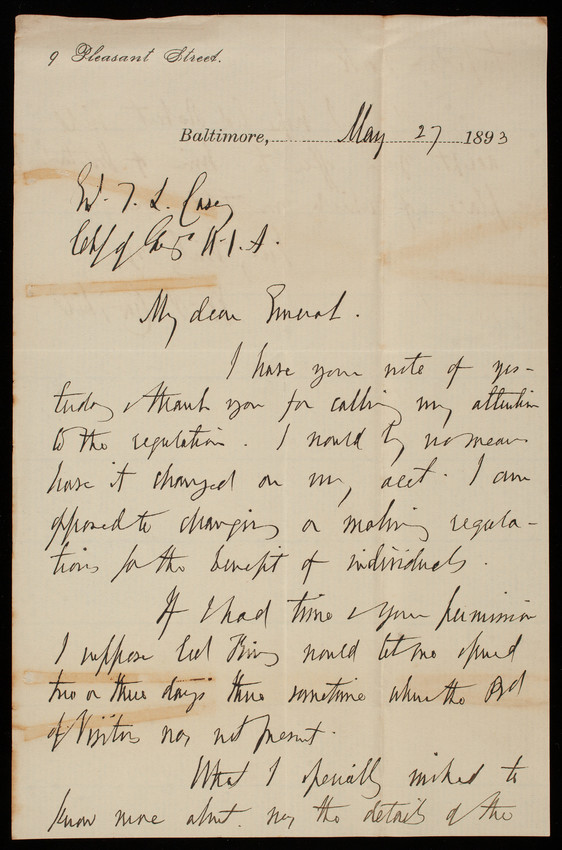 9 Pleasant Street.
Baltimore, May 27 1893
T. L. Casey
Chf of Eng's U.S.A.
My dear General.
I have your note of yes-
terday & thank you for calling my attention
to the regulation. I would by no means
have it changed on my acct. I am
opposed to changing or making regula-
tions for the benefit of individuals.
If I had time & your permission
I suppose Col King would let me spend
two or three days there sometime when the Bd
of Visitors was not present.
What I specially wished to
know more about was the details of the